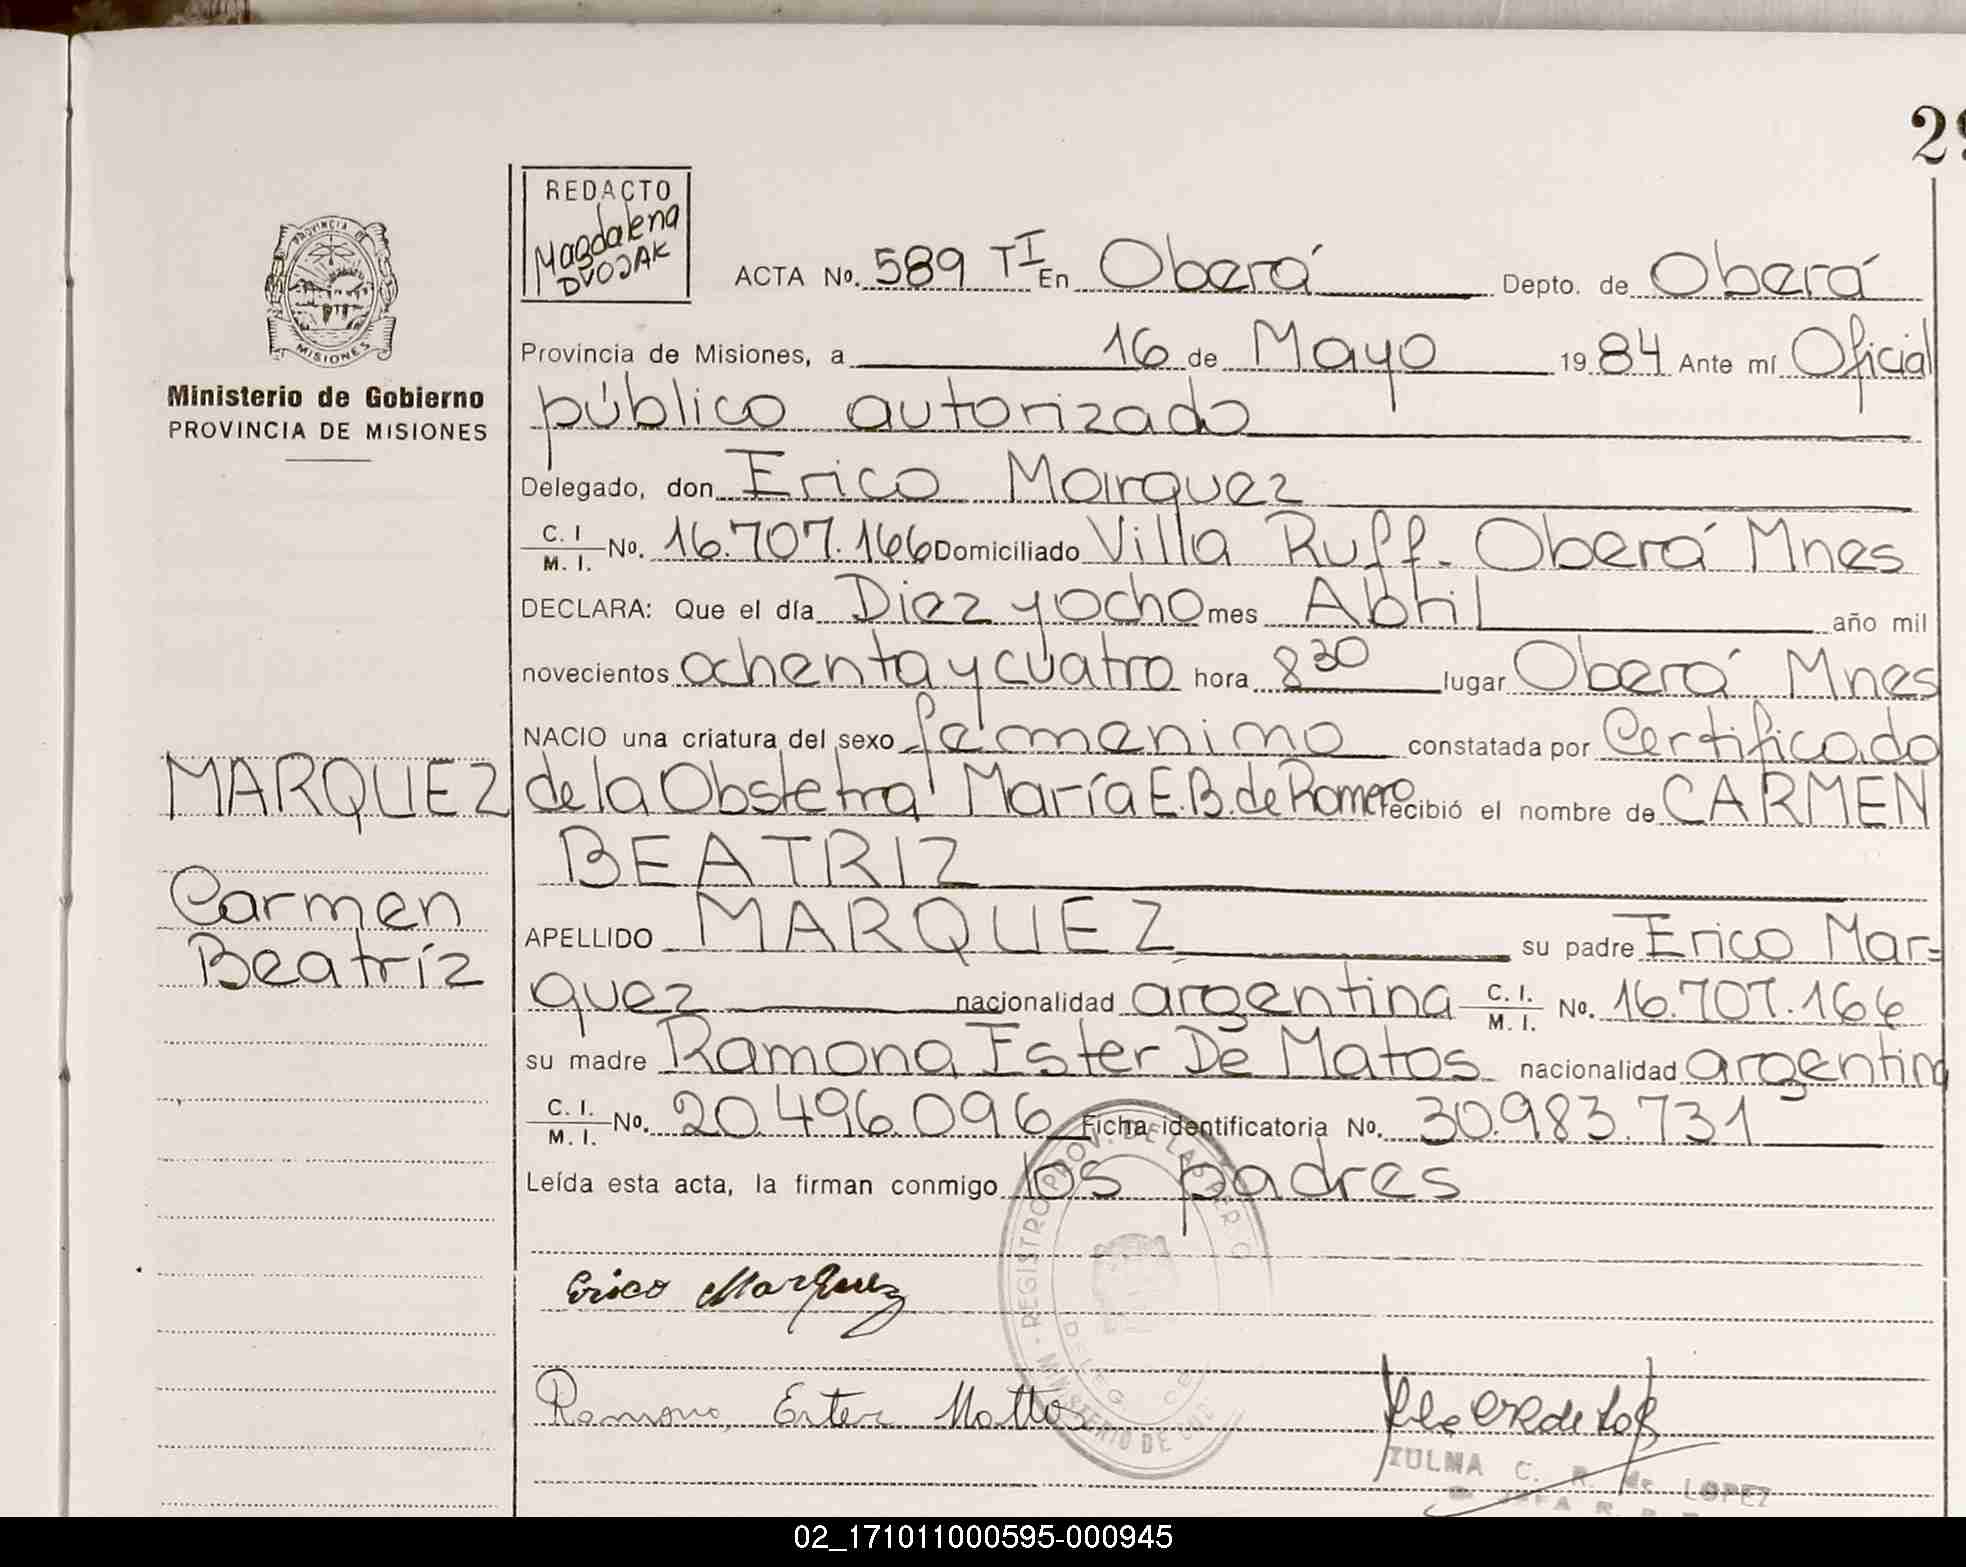 29
REDACTO
Magdalena
DVOJAK
PROVINCIA DE
MISIONES
Ministerio de Gobierno
PROVINCIA DE MISIONES
ACTA No. 589 TI En Oberá Depto. de Oberá
Provincia de Misiones, a 16 de Mayo 1984 Ante mí Oficial
público autorizado
Delegado, don Erico Marquez
C. I / M. I. No. 16.707.166 Domiciliado Villa Ruff. Oberá Mnes
DECLARA: Que el día Diez y ocho mes Abril año mil
novecientos ochenta y cuatro hora 8 30 lugar Oberá Mnes
NACIO una criatura del sexo femenino constatada por Certificado
MARQUEZ
de la Obstetra María E.B. de Romero recibió el nombre de CARMEN
BEATRIZ
Carmen
Beatríz
APELLIDO MARQUEZ su padre Erico Mar=
quez nacionalidad argentina C. I. / M. I. No. 16.707.166
su madre Ramona Ester De Matos nacionalidad argentina
C. I. / M. I. No. 20.496.096 Ficha identificatoria No. 30.983.731
Leída esta acta, la firman conmigo los padres
REGISTRO PROV. DE LAS PER
MINISTERIO DE
DELEG
Erico Marquez
Ramona Ester Mattos
ZULMA C. R. de LOPEZ
02_171011000595-000945